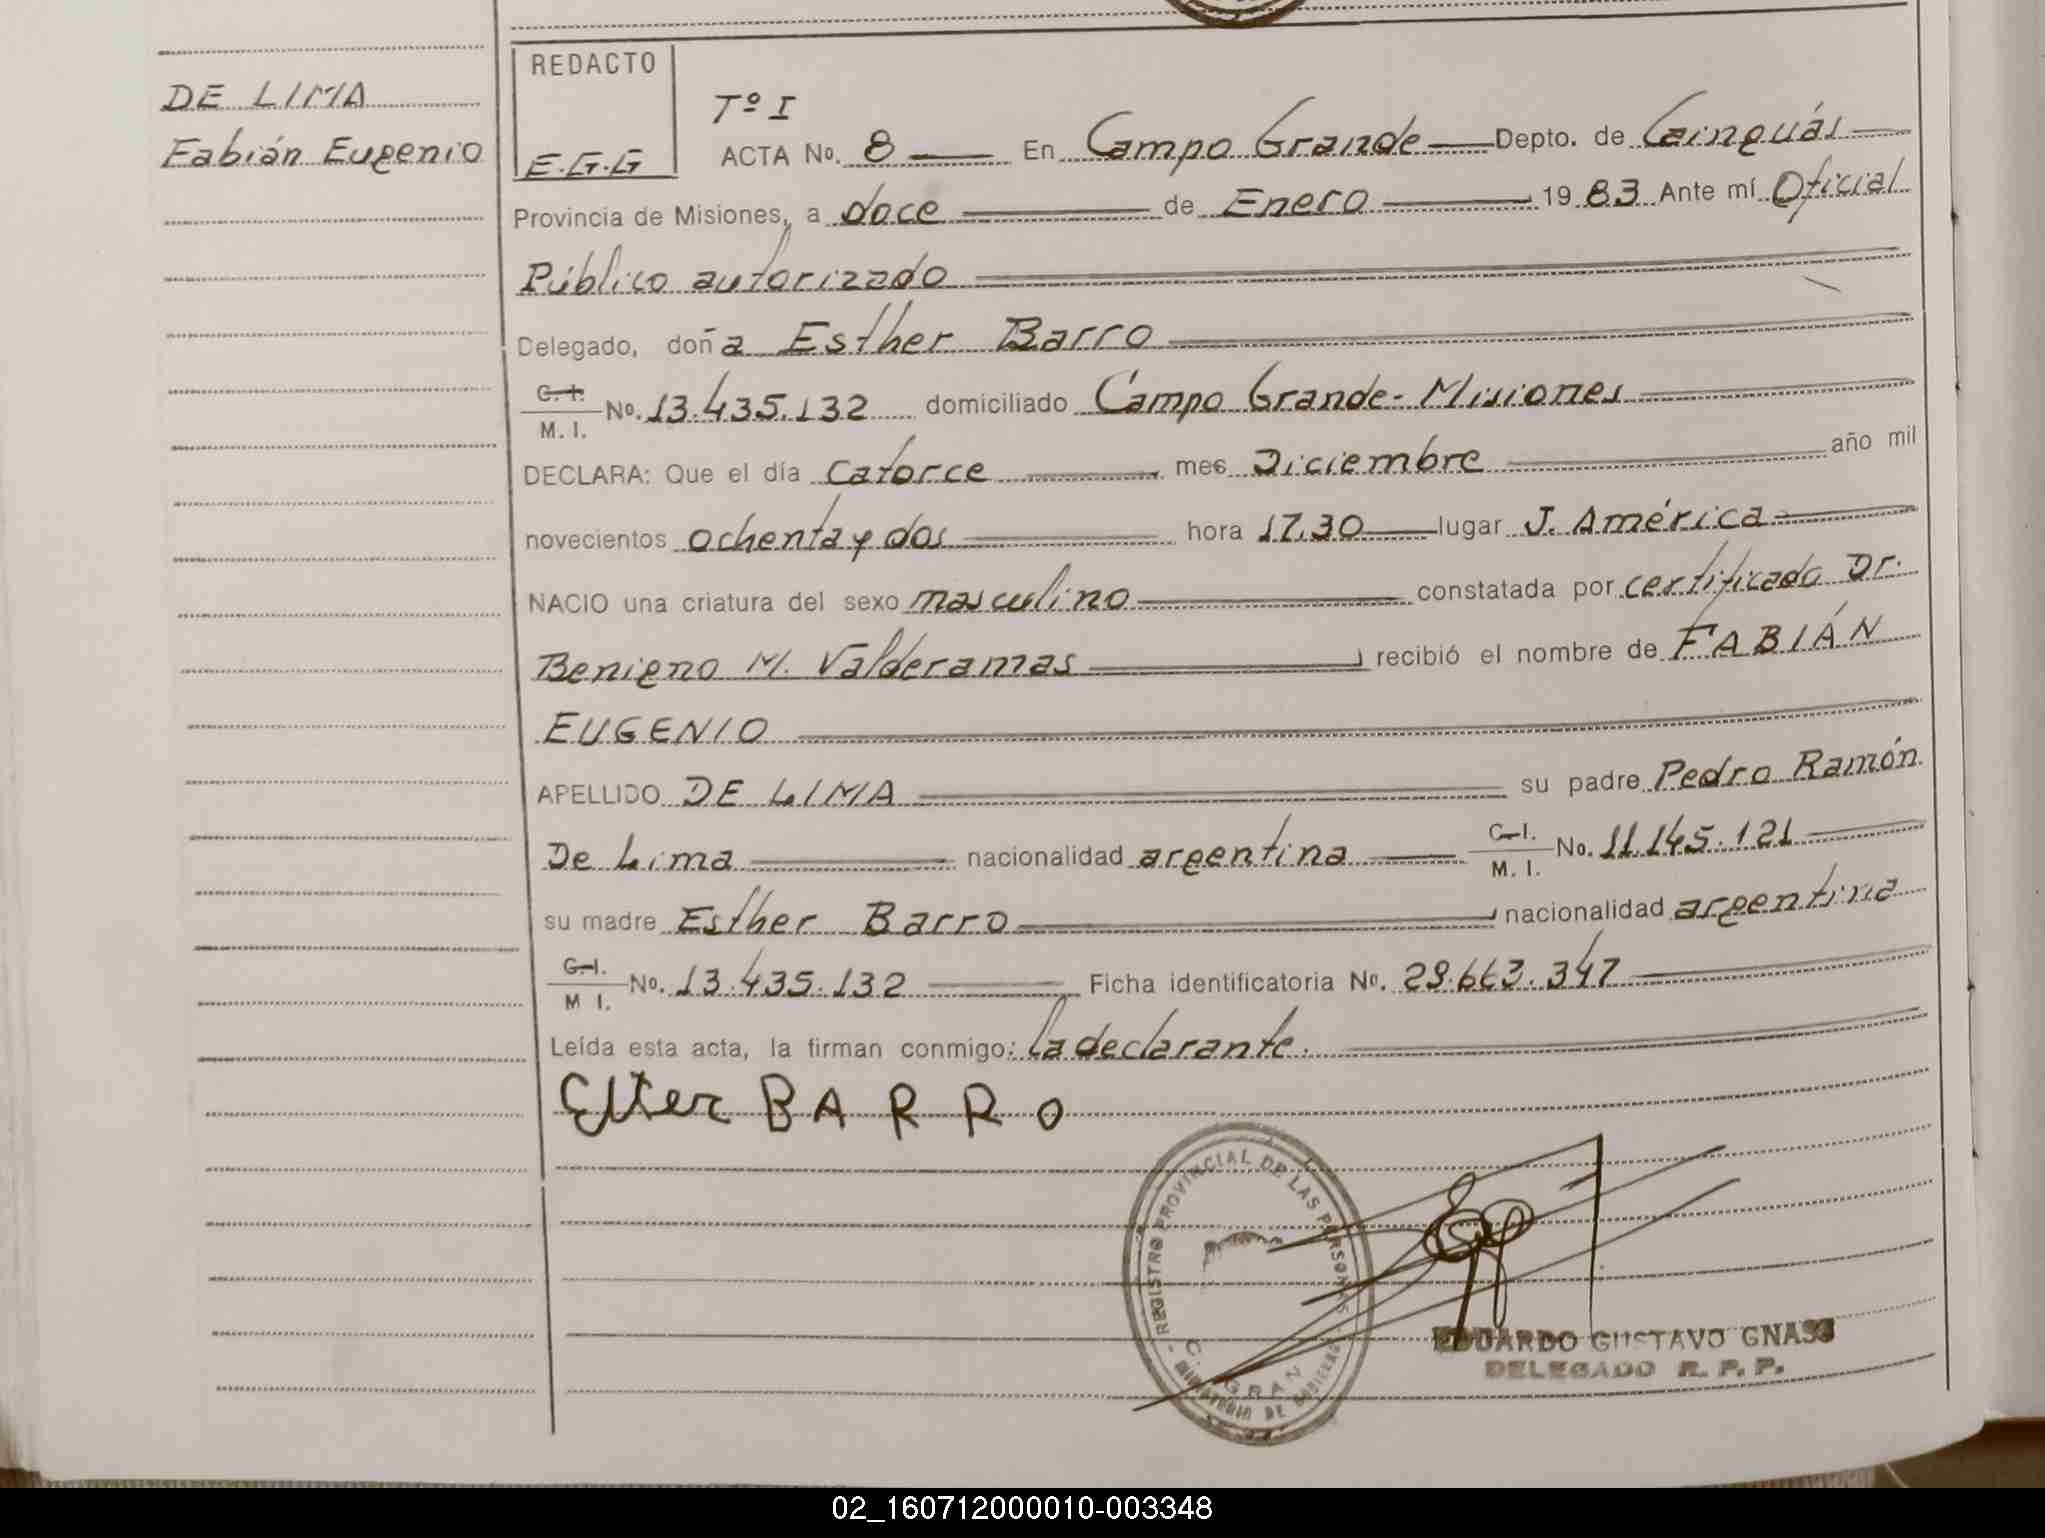 DE LIMA
Fabián Eugenio
REDACTO
E.G.G
Tº I
ACTA No. 8 En Campo Grande Depto. de Cainguás
Provincia de Misiones, a doce de Enero 1983 Ante mí Oficial
Público autorizado
Delegado, doña Esther Barro
C. I. M. I. No. 13.435.132 domiciliado Campo Grande - Misiones
DECLARA: Que el día catorce mes Diciembre año mil
novecientos ochenta y dos hora 17.30 lugar J. América
NACIO una criatura del sexo masculino constatada por certificado Dr.
Benigno M. Valderamas recibió el nombre de FABIÁN
EUGENIO
APELLIDO DE LIMA su padre Pedro Ramón
De Lima nacionalidad argentina C.I. M. I. No. 11.145.121
su madre Esther Barro nacionalidad argentina
C.I. M I. No. 13.435.132 Ficha identificatoria No. 29.663.347
Leída esta acta, la firman conmigo: la declarante.
Ester BARRO
- REGISTRO PROVINCIAL DE LAS PERSONAS -
MINISTERIO DE GOBIERNO
EDUARDO GUSTAVO GNASS
DELEGADO R. P. P.
02_160712000010-003348